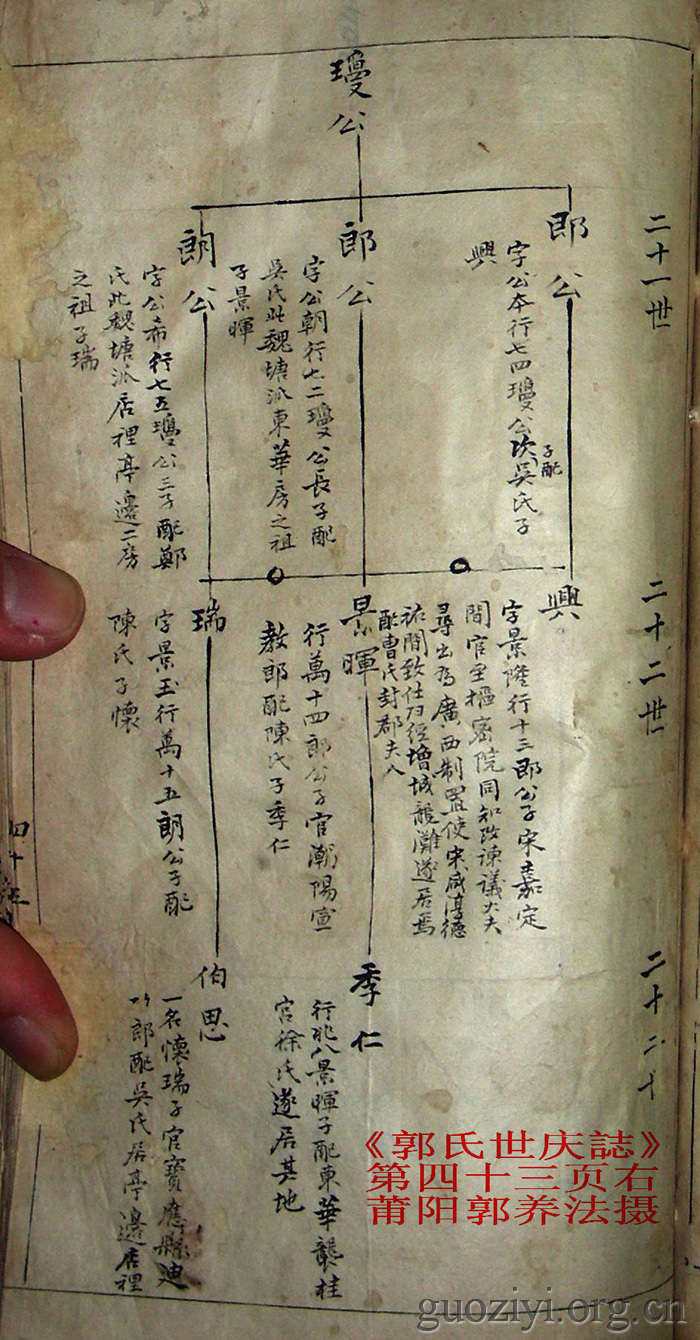 瓊公
二十一世
郎公
字公本行七四瓊公次子配吳氏子
興
郎公
字公朝行七二瓊公長子配
吳氏此魏塘派東華房之祖
子景暉
朗公
字公希行七五瓊公三子配鄭
氏此魏塘派店裡亭邊二房
之祖子瑞
二十二世
興
字景隆行十三郎公子宋嘉定
間官至樞密院同知改諫議大夫
尋出為廣西制置使宋咸淳德
祐間致仕歸經增城龍灘遂居焉
配曹氏封郡夫人
景暉
行萬十四郎公子官潮陽宣
教郎配陳氏子季仁
瑞
字景玉行萬十五朗公子配
陳氏子懷
二十二十
季仁
行兆八景暉子配東華龔桂
官徐氏遂居其地
伯思
一名懷瑞子官寶應縣迪
功郎配吳氏居亭邊店裡
四十
《郭氏世庆誌》
第四十三页右
莆阳郭养法摄
guoziyi.org.cn